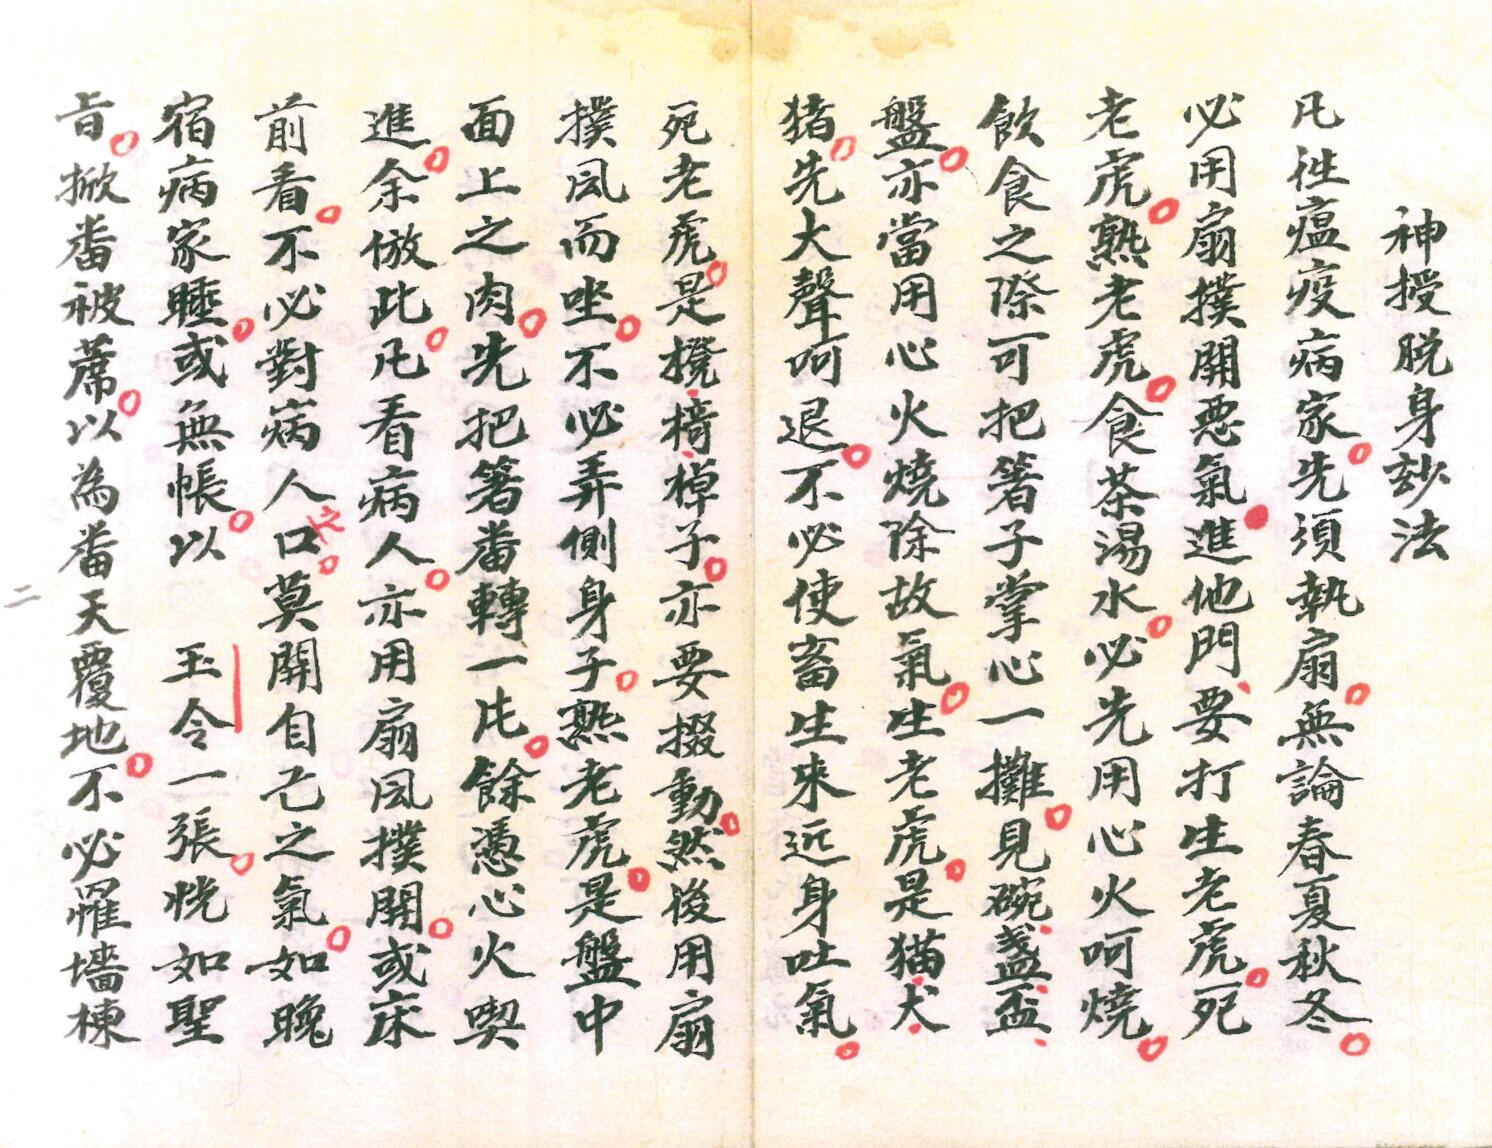 神授脱身玅法
凡往瘟疫病家。先須執扇。無論春夏秋冬。
必用扇撲開惡氣。進他門、要打生老虎。死
老虎。熟老虎。食茶湯水。必先用心火呵燒。
飲食之際可把箸子掌心一攤。見碗、盞、盃、
盤。亦當用心火燒除故氣。生老虎。是猫、犬、
猪。先大聲呵退。不必使畜生來近身吐氣。
死老虎。是櫈、椅、棹子。亦要掇動。然後用扇
撲風而坐。不必弄側身子。熟老虎。是盤中
面上之肉。先把箸畨轉一片。餘憑心火喫
進。余倣此。凡看病人。亦用扇風撲開。或床
前看。不必對病人口。莫開自己之氣。如晚
宿病家睡。或無帳。以 玉令一張。恍如聖
旨。掀畨被蓆。以為畨天覆地。不必罹墻棟
二